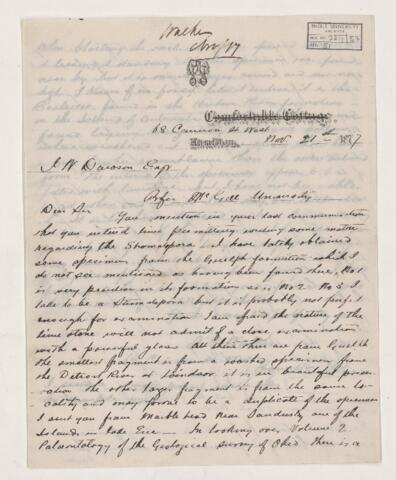 Walker
Nov/77
McGILL UNIVERSITY
ARCHIVES
ACC. NO.
REF.
Comfortable Cottage
68 Cameron St West
Hamilton, Nov. 21st 1877
J W Dawson Esqr
Profr McGill University
Dear Sir
You mention in your last communication
that you intend time permitting writing some matter
regarding the Stromatopora I have lately obtained
some specimens from the Guelph formation which I
do not see mentioned as having been found there, No 1
is very peculiar in its formation so is No 2. No 3 I
take to be a Stromatopora but it is probably not perfect
enough for examination I am afraid the nature of the
lime stone will not admit of a close examination
with a powerful glass All these three are from Guelph
the smallest fragment is from a washed specimen from
the Detroit River at Windsor it is in beautiful preser-
vation the other larger fragment is from the same lo-
cality and may prove to be a duplicate of the specimen
I sent you from Marblehead near Sandusky one of the
Islands in Lake Erie — In looking over Volume 2
Palaeontology of the Geological survey of Ohio there is a